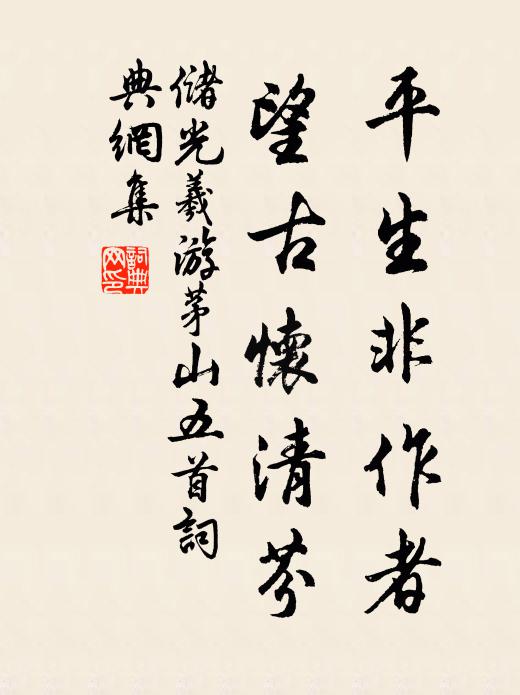 平生非作者
望古懷清芬
儲光羲游茅山五首詞
典網集
詞典
网印